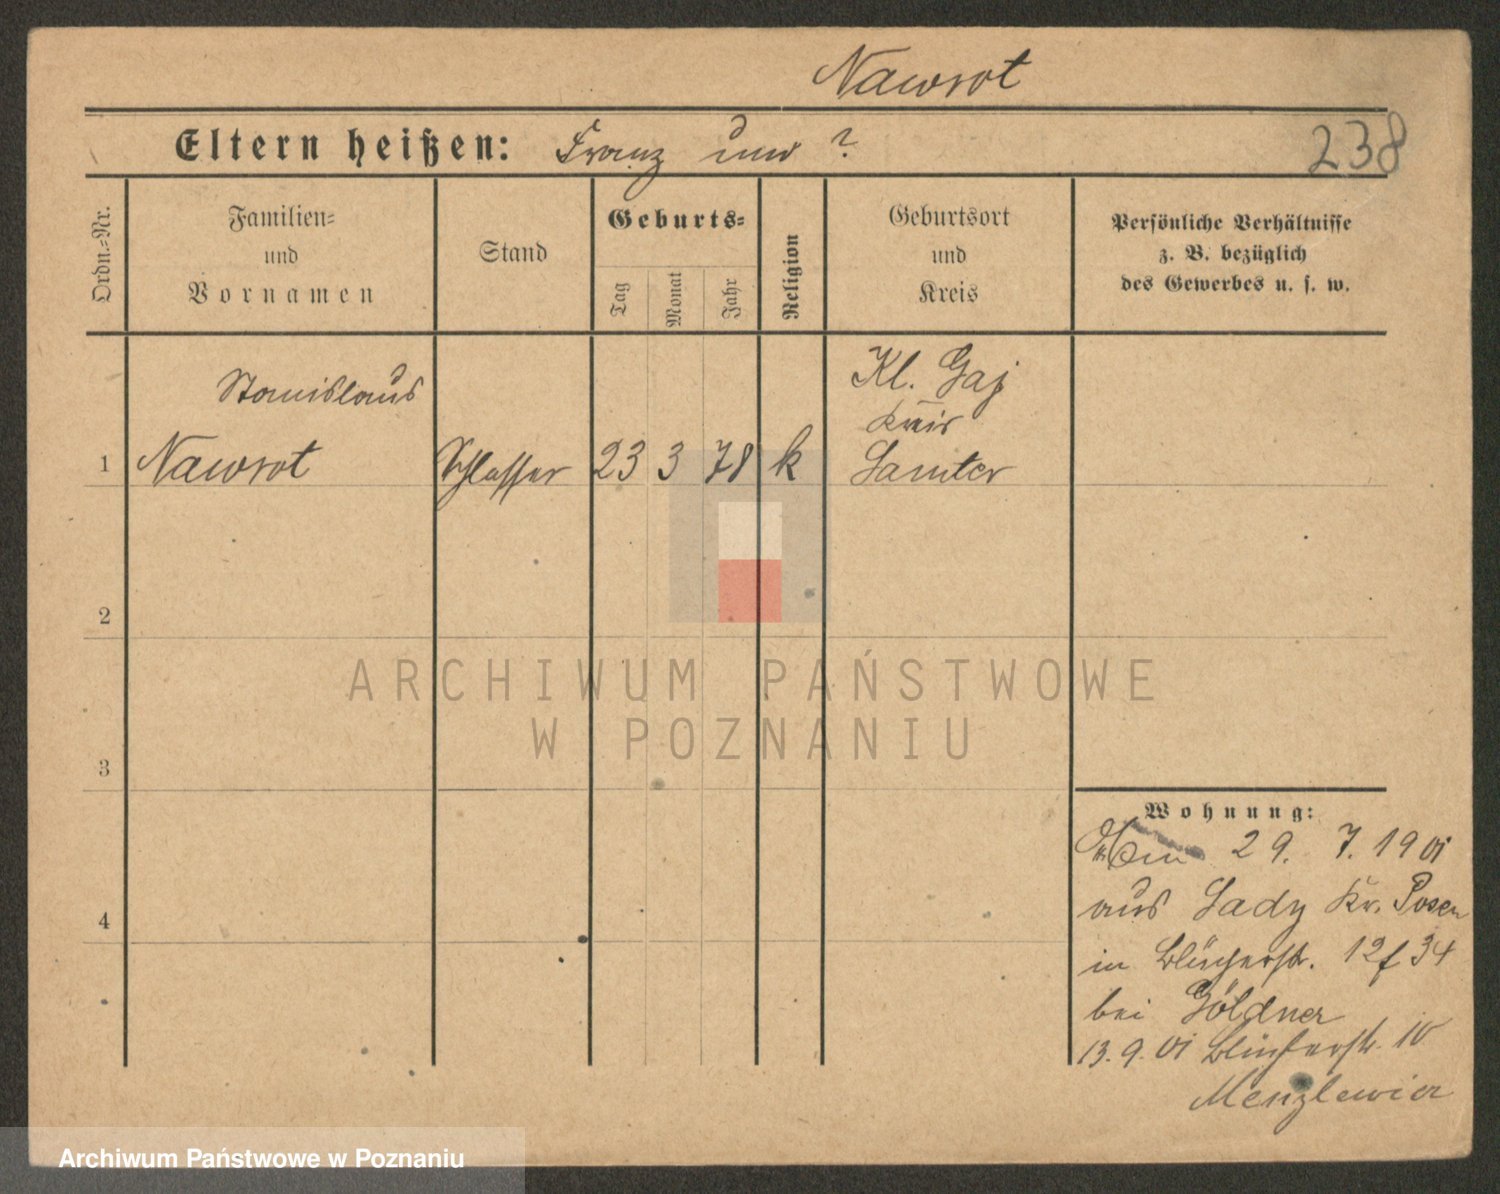 Nawrot
Eltern heißen: Franz und ?
238
Ordn.-Nr.
Familien-
und
Vornamen
Stand
Geburts-
Tag
Monat
Jahr
Religion
Geburtsort
und
Kreis
Persönliche Verhältnisse
z. B. bezüglich
des Gewerbes u. s. w.
Stanislaus
Kl. Gaj
Kreis
1 Nawrot Schlosser 23 3 78 k Samter
2
ARCHIWUM PAŃSTWOWE
W POZNANIU
3
Wohnung:
29. 7. 1901
4
aus Lady Kr. Posen
in Blücherstr. 12 34
bei Göldner
13. 9. 01 Blücherstr. 10
Archiwum Państwowe w Poznaniu